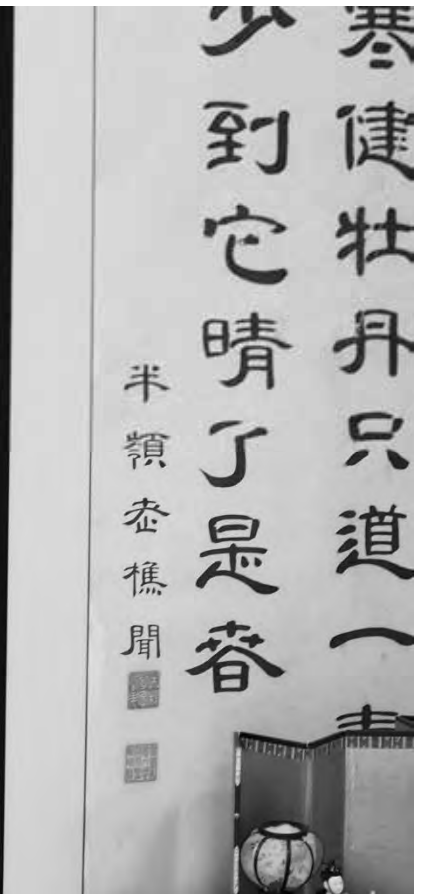 寒健牡丹只道一
少到它晴了是春
半嶺老樵聞